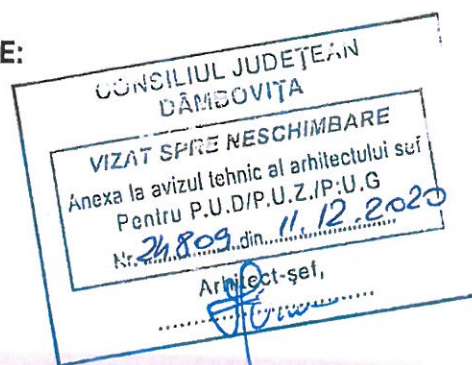 E:
CONSILIUL JUDEȚEAN
DÂMBOVIȚA
VIZAT SPRE NESCHIMBARE
Anexa la avizul tehnic al arhitectului sef
Pentru P.U.D/P.U.Z./P.U.G
Nr. 24.809 din 11.12.2020
Arhitect-șef,